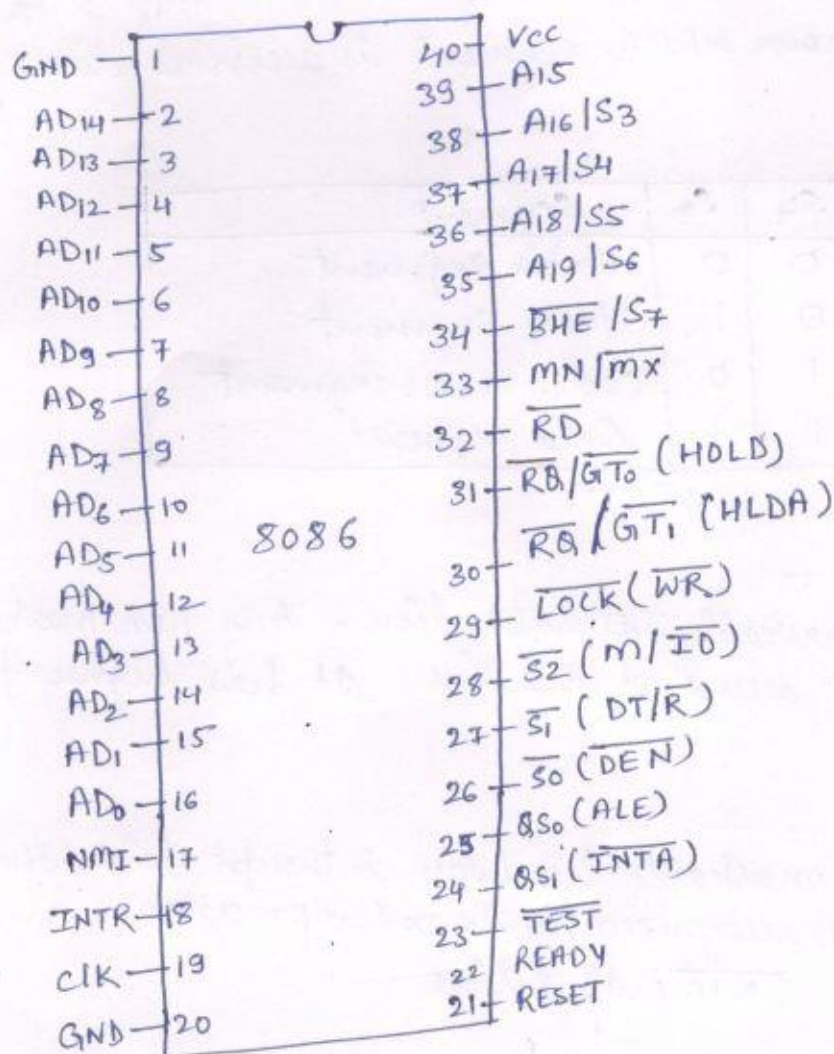 GND
AD14 2
AD13 3
AD12 4
AD11 5
AD10 6
AD9 7
AD8 8
AD7 9
AD6 10
AD5 11
AD4 12
AD3 13
AD2 14
AD1 15
AD0 16
NMI 17
INTR 18
CLK 19
GND 20
8086
40 VCC
39 A15
38 A16/S3
37 A17/S4
36 A18/S5
35 A19/S6
34 B̅H̅E̅/S7
33 MN/M̅X̅
32 R̅D̅
31 R̅Q̅/G̅T̅0̅ (HOLD)
30 R̅Q̅/G̅T̅1̅ (HLDA)
29 L̅O̅C̅K̅ (W̅R̅)
28 S̅2̅ (M/I̅O̅)
27 S̅1̅ (DT/R̅)
26 S̅0̅ (D̅E̅N̅)
25 QS0 (ALE)
24 QS1 (I̅N̅T̅A̅)
23 T̅E̅S̅T̅
22 READY
21 RESET